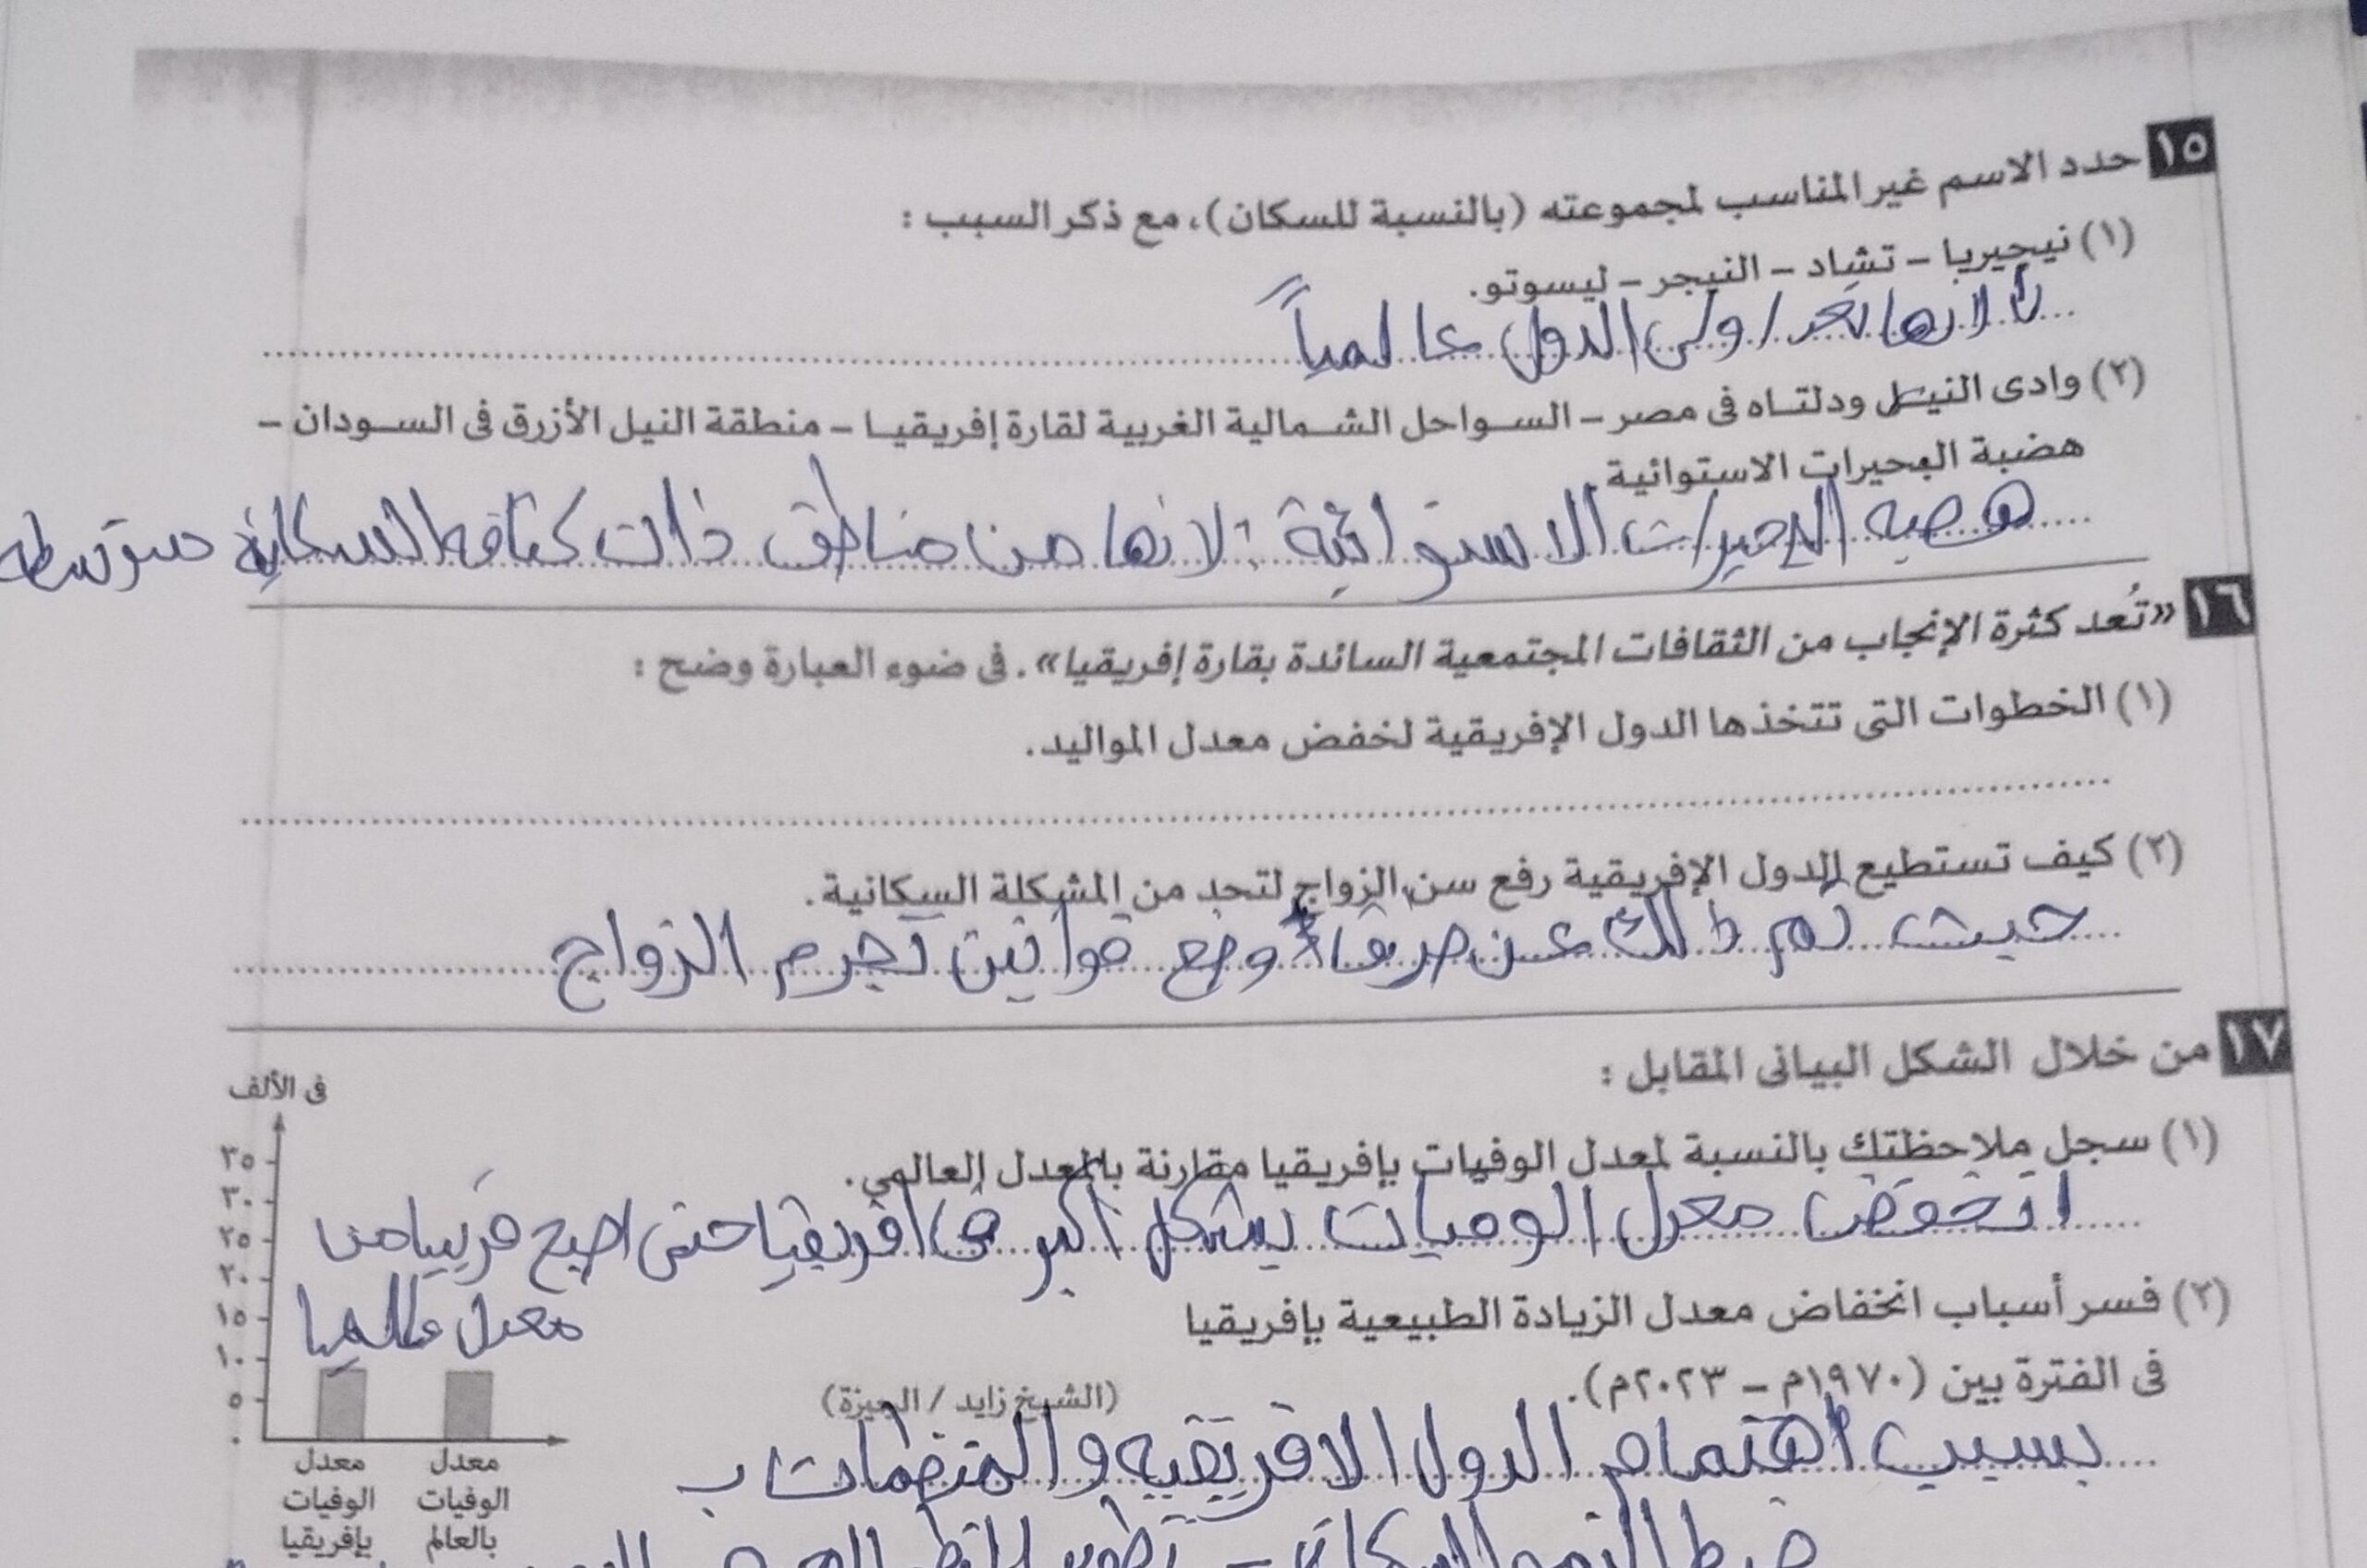 ١٥ حدد الاسم غير المناسب لمجموعته (بالنسبة للسكان)، مع ذكر السبب :
(١) نيجيريا – تشاد – النيجر – ليسوتو.
لانها تعد اولى الدول عالمياً
(٢) وادى النيل ودلتاه فى مصر – السواحل الشمالية الغربية لقارة إفريقيا – منطقة النيل الأزرق فى السودان –
هضبة البحيرات الاستوائية.
هضبه البحيرات الاستوائية : لانها من مناطق ذات كثافه السكانية متوسطه
١٦ «تُعد كثرة الإنجاب من الثقافات المجتمعية السائدة بقارة إفريقيا». فى ضوء العبارة وضح :
(١) الخطوات التى تتخذها الدول الإفريقية لخفض معدل المواليد.
(٢) كيف تستطيع الدول الإفريقية رفع سن الزواج لتحد من المشكلة السكانية.
حيث تم ذلك عن طريق وضع قوانين تجرم الزواج
١٧ من خلال الشكل البيانى المقابل :
(١) سجل ملاحظتك بالنسبة لمعدل الوفيات بإفريقيا مقارنة بالمعدل العالمي.
انخفض معدل الوفيات بشكل اكبر فى افريقيا حتى اصبح قريبا من
معدل عالميا
(٢) فسر أسباب انخفاض معدل الزيادة الطبيعية بإفريقيا
فى الفترة بين (١٩٧٠م – ٢٠٢٣م).
(الشيخ زايد / الجيزة)
بسبب اهتمام الدول الافريقيه والمنظمات ب
ضبط النمو السكانى –
فى الألف
٣٥
٣٠
٢٥
٢٠
١٥
١٠
٥
٠
معدل الوفيات بالعالم
معدل الوفيات بإفريقيا